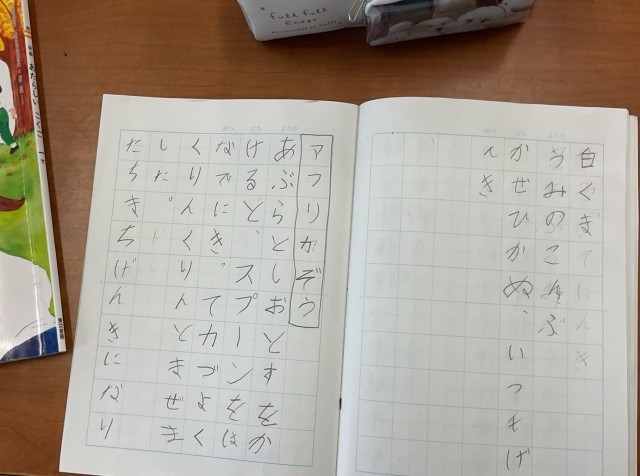 full full
Enaga
白くま
うみのこねぶ
かぜひかぬ、いつもげ
んき
アフリかぞう
あぶらとしおとすをか
けると、スプーンをは
なでにき。てカづよく
くりんくりんとまぜま
した。
たちまちげんきになり